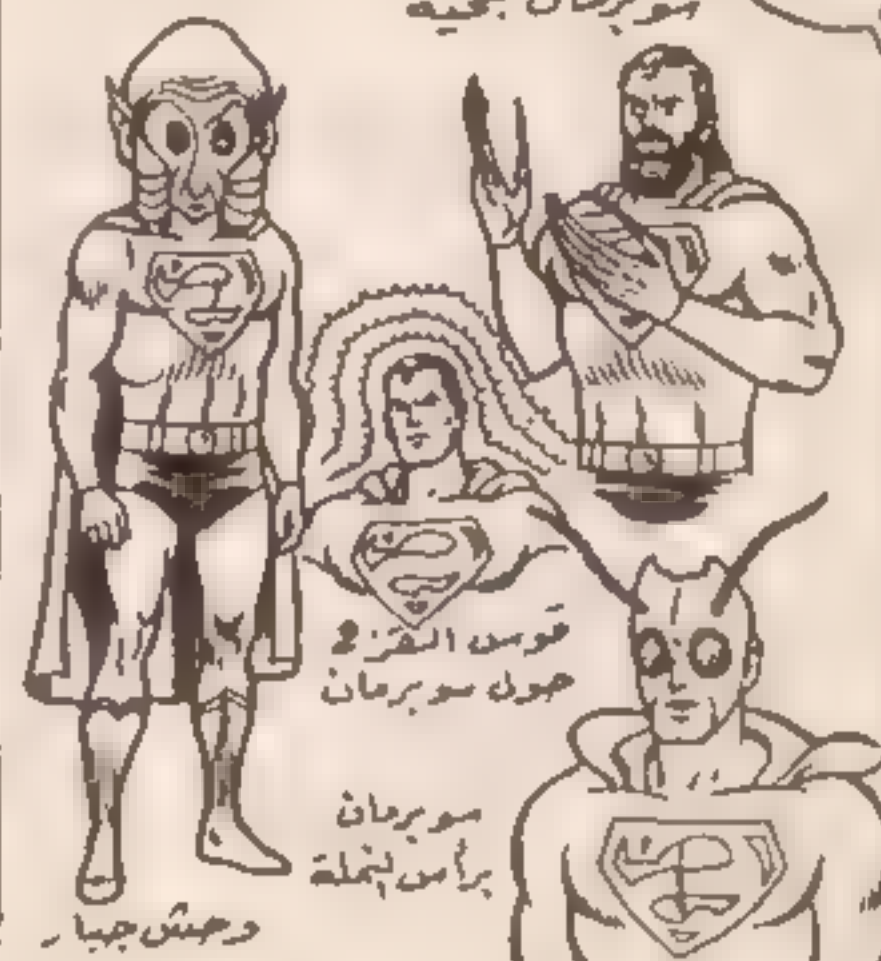 سوبرمان بلحية
قوس القزح
حول سوبرمان
سوبرمان
برأس نملة
وحش جبار